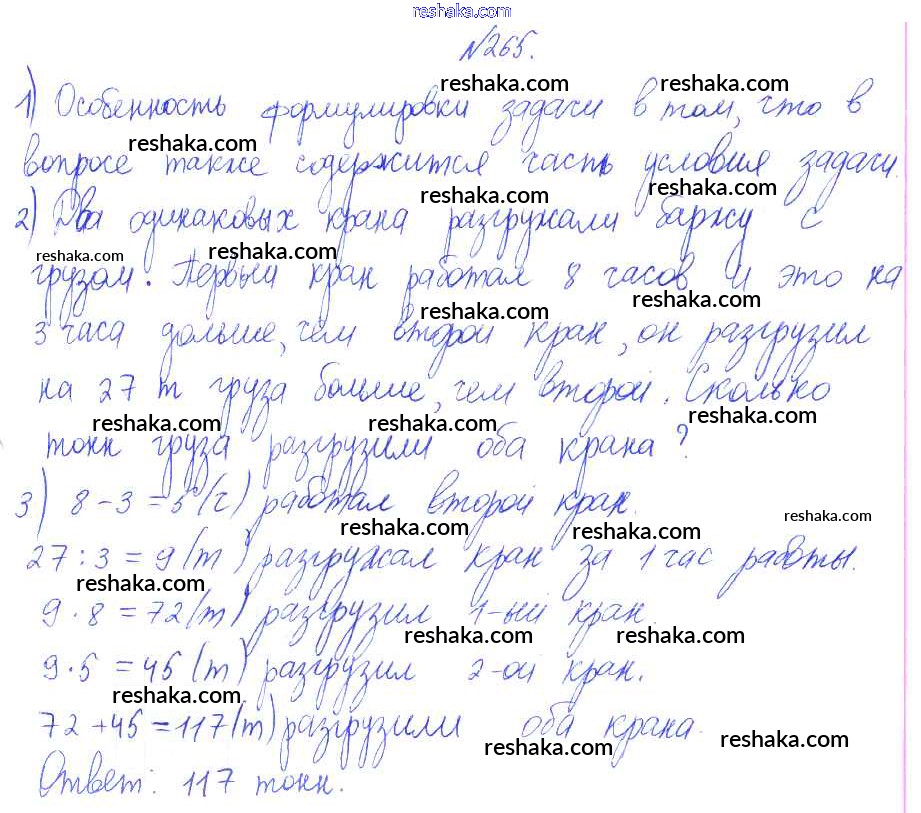 reshaka.com
№265.
reshaka.com reshaka.com
1) Особенность формулировки задачи в том, что в
reshaka.com
вопросе также содержится часть условия задачи.
reshaka.com reshaka.com
2) Два одинаковых крана разгружали баржу с
reshaka.com reshaka.com
грузом. Первый кран работал 8 часов и это на
reshaka.com reshaka.com
3 часа дольше, чем второй кран, он разгрузил
на 27 т груза больше, чем второй. Сколько
reshaka.com reshaka.com reshaka.com
тонн груза разгрузили оба крана?
3) 8-3=5(ч) работал второй кран.
reshaka.com reshaka.com reshaka.com
27:3=9(т) разгружал кран за 1 час работы.
reshaka.com
9·8=72(т) разгрузил 1-ый кран.
reshaka.com reshaka.com
9·5=45(т) разгрузил 2-ой кран.
reshaka.com
72+45=117(т) разгрузили оба крана.
reshaka.com reshaka.com
Ответ: 117 тонн.